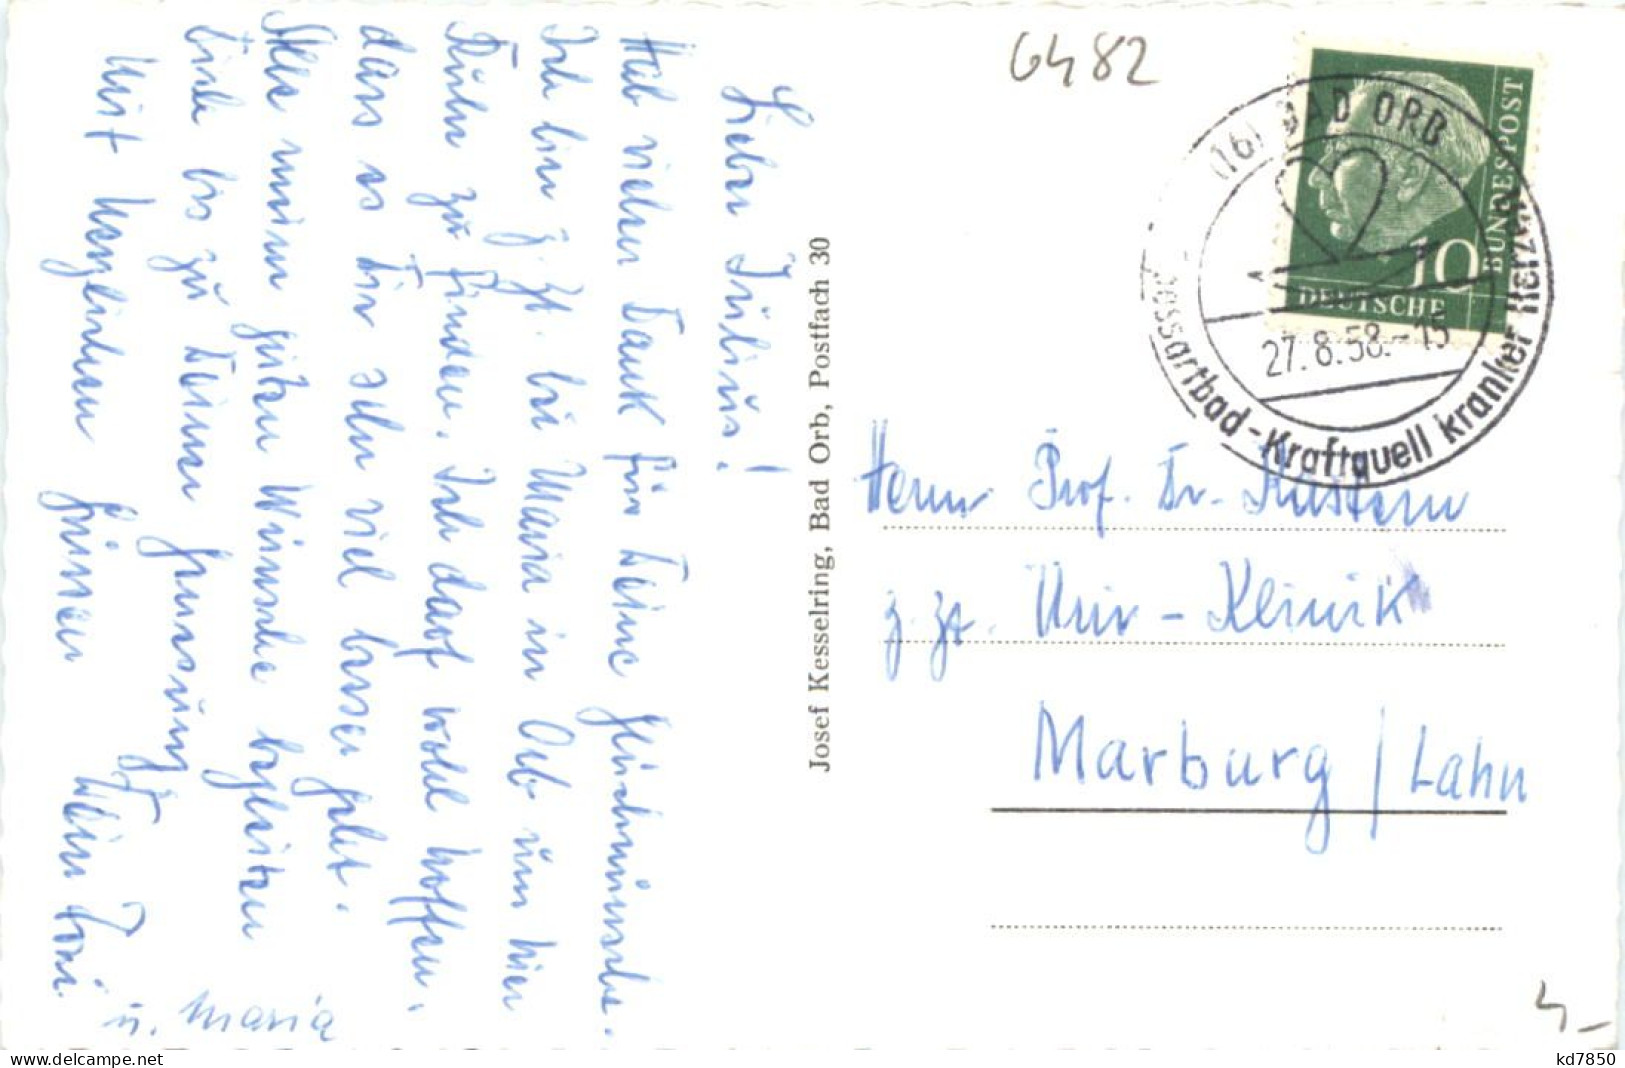 Lieber Julius!
Hab vielen Dank für Deine Glückwünsche.
Ich bin z. Zt. bei Maria in Orb um hier
Ruhe zu finden. Ich darf wohl hoffen,
dass es Dir sehr viel besser geht.
Alle meine guten Wünsche begleiten
Dich bis zu Deiner Genesung.
Mit herzlichen Grüssen Dein Toni
u. Maria
Josef Kesselring, Bad Orb, Postfach 30
6482
(16) BAD ORB
27.8.58.-15
Spessartbad-Kraftquell kranker Herzen
DEUTSCHE
BUNDESPOST
10
Herrn Prof. Dr.
z. Zt. Univ-Klinik
Marburg/Lahn
4-
delcampe.net
kd7850